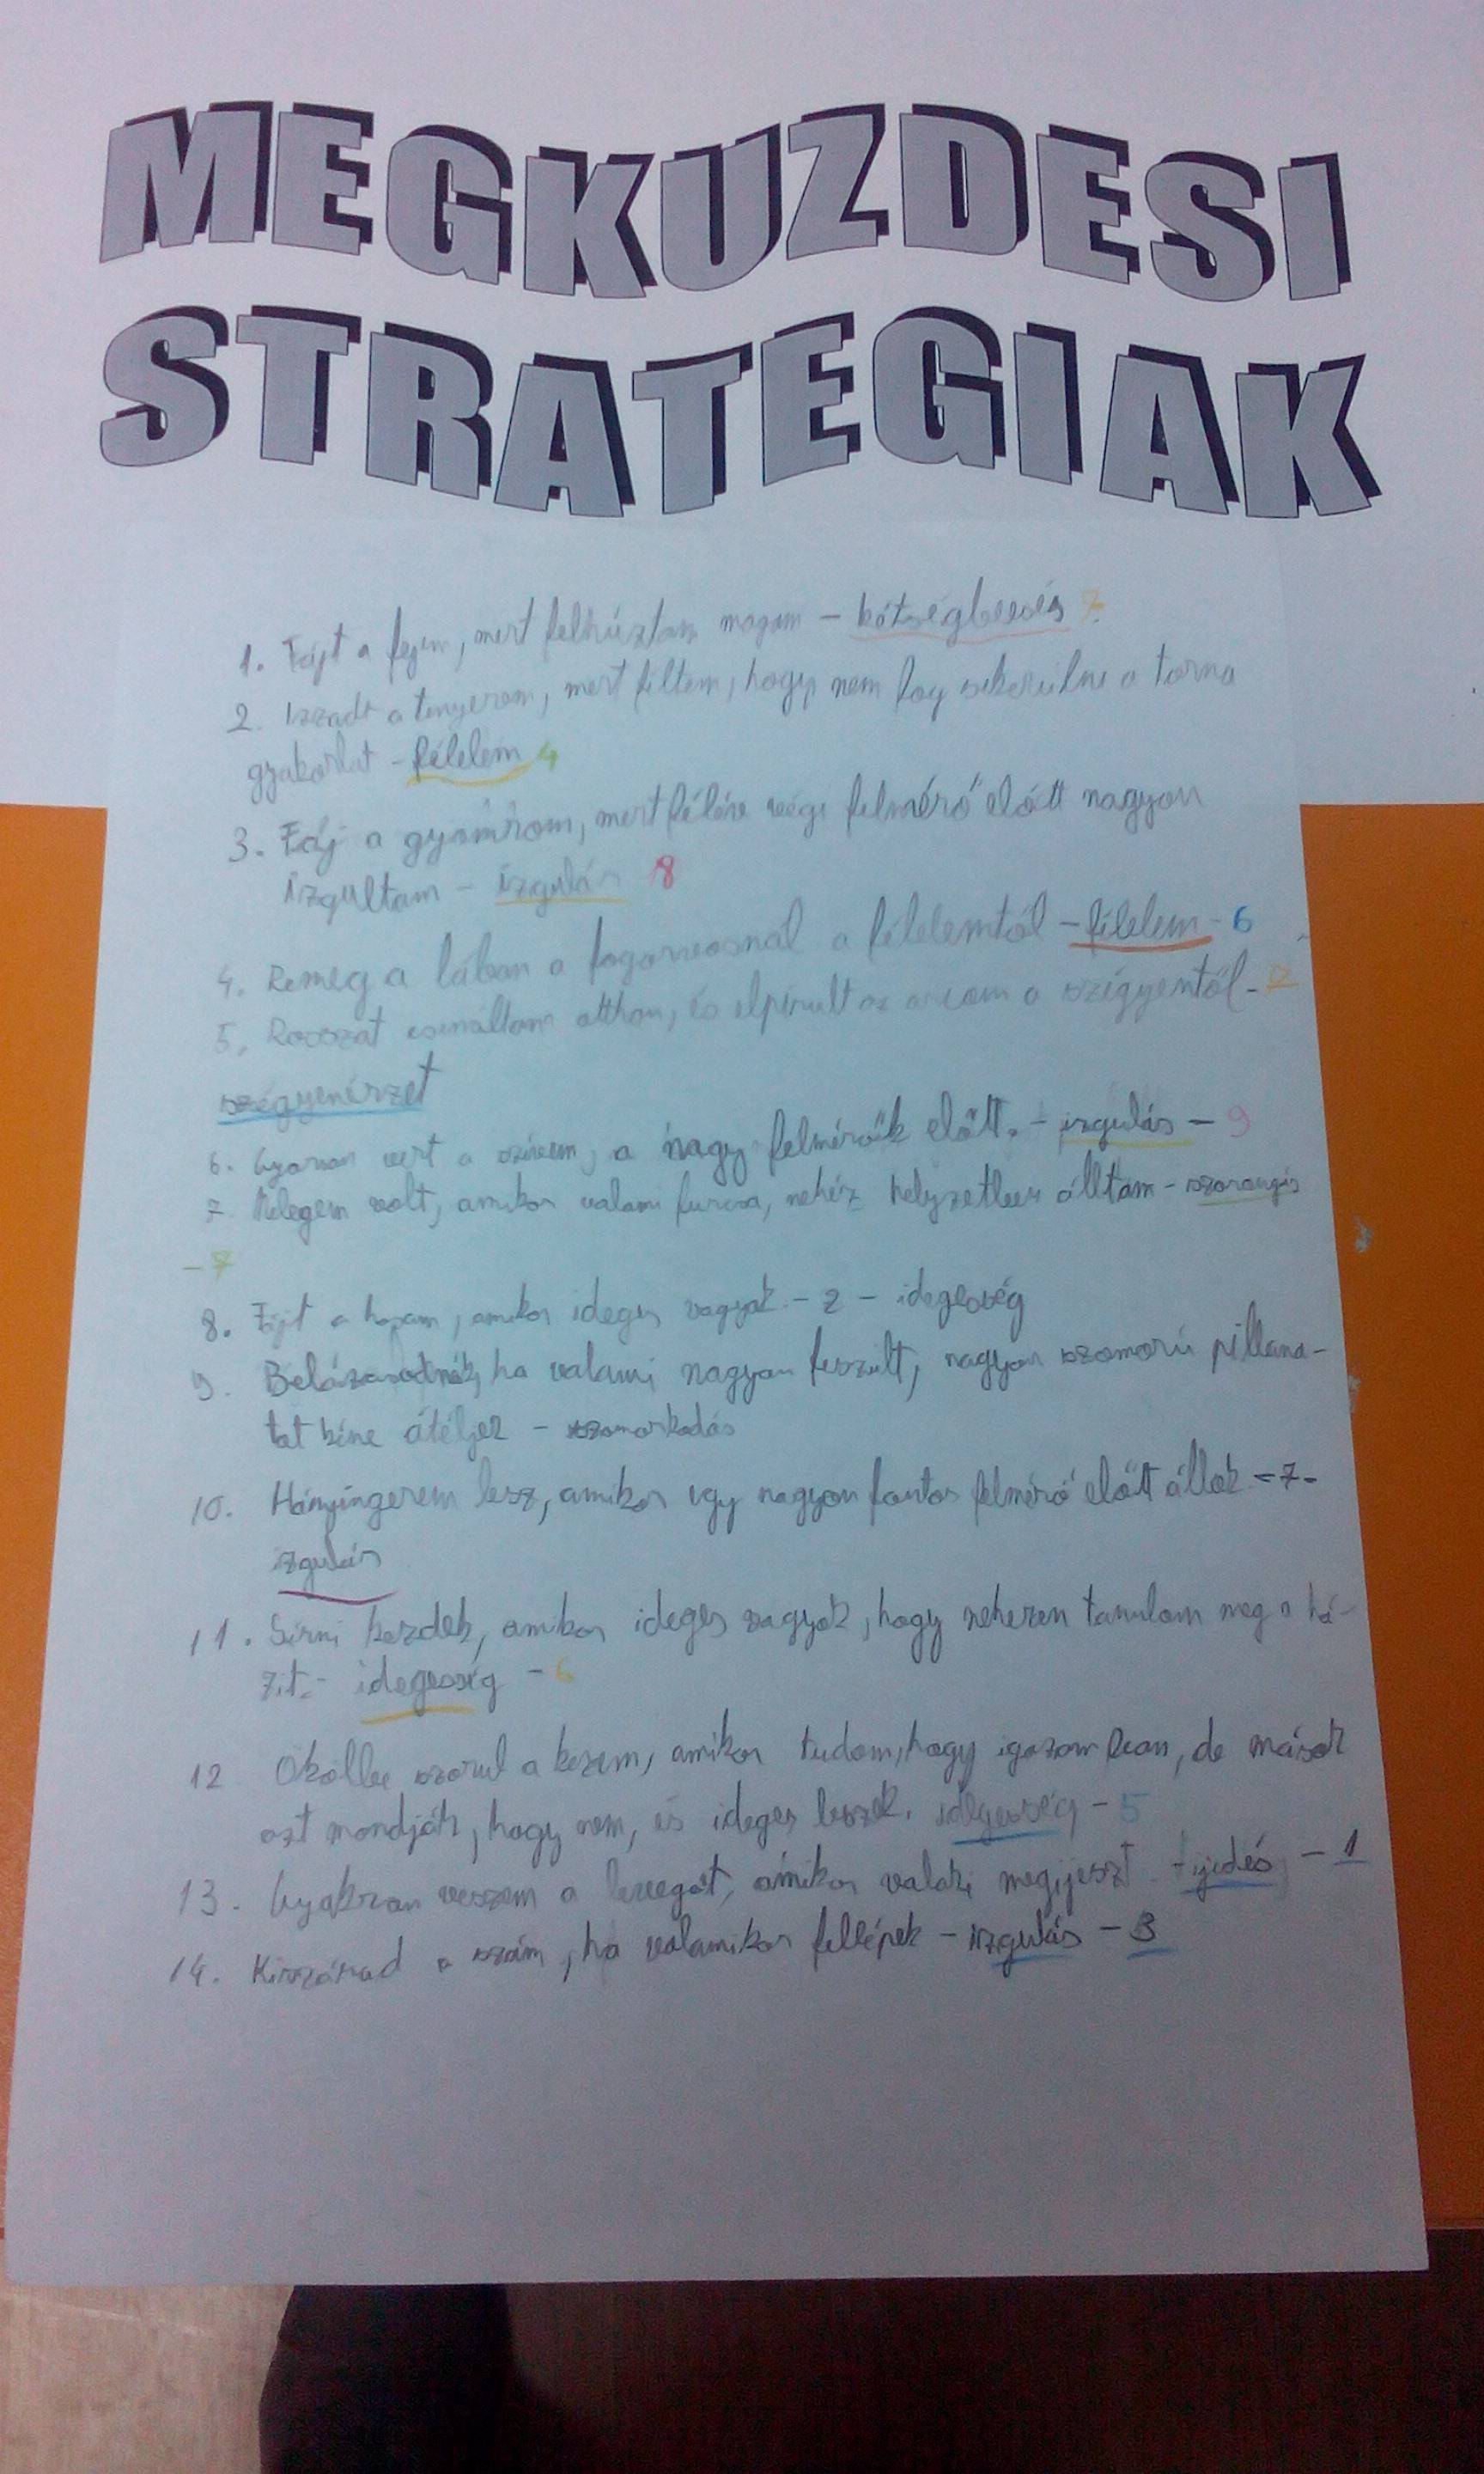 MEGKUZDESI
STRATEGIAK
1. Fájt a fejem, mert felhúztam magam – kétségbeesés 7
2. Izzadt a tenyerem, mert féltem, hogy nem fog sikerülni a torna
gyakorlat – félelem 4
3. Fáj a gyomrom, mert félév végi felmérő előtt nagyon
izgultam – izgulás 8
4. Remeg a lábam a fogorvosnál a félelemtől – félelem – 6
5. Rosszat csináltam otthon, és elpirult az arcom a szégyentől –
szégyenérzet
6. Gyorsan vert a szívem, a nagy felmérők előtt. – izgulás – 9
7. Melegem volt, amikor valami furcsa, nehéz helyzetben álltam – szorongás
– 7
8. Fájt a hasam, amikor ideges vagyok – 2 – idegesség
9. Belázasodnék, ha valami nagyon feszült, nagyon szomorú pillana-
tot kéne átéljek – szomorkodás
10. Hányingerem lesz, amikor egy nagyon fontos felmérő előtt állok – 7 –
izgulás
11. Sírni kezdek, amikor ideges vagyok, hogy nehezen tanulom meg a há-
zit. – idegesség – 6
12 Ökölbe szorul a kezem, amikor tudom, hogy igazam van, de mások
azt mondják, hogy nem, és ideges leszek. idegesség – 5
13. Gyakran veszem a levegőt, amikor valaki megijeszt – ijedés – 1
14. Kiszárad a szám, ha valamikor fellépek – izgulás – 3